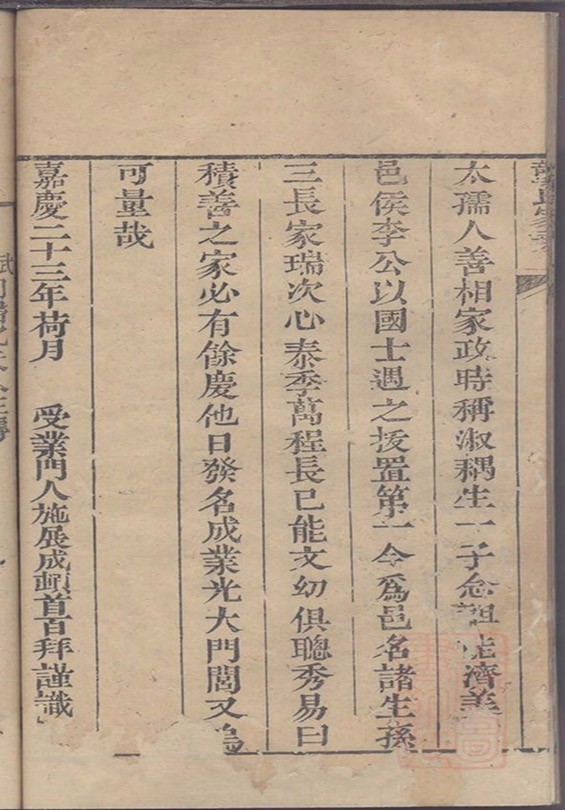 太孺人善相家政時稱淑稱生一子念祖 濟美
邑侯李公以國士遇之拔置第一今爲邑名諸生孫
三長家瑞次心泰季萬程長已能文幼俱聰秀易曰
積善之家必有餘慶他日發名成業光大門閭又烏
可量哉
嘉慶二十三年荷月 受業門人施展成頓首百拜謹識